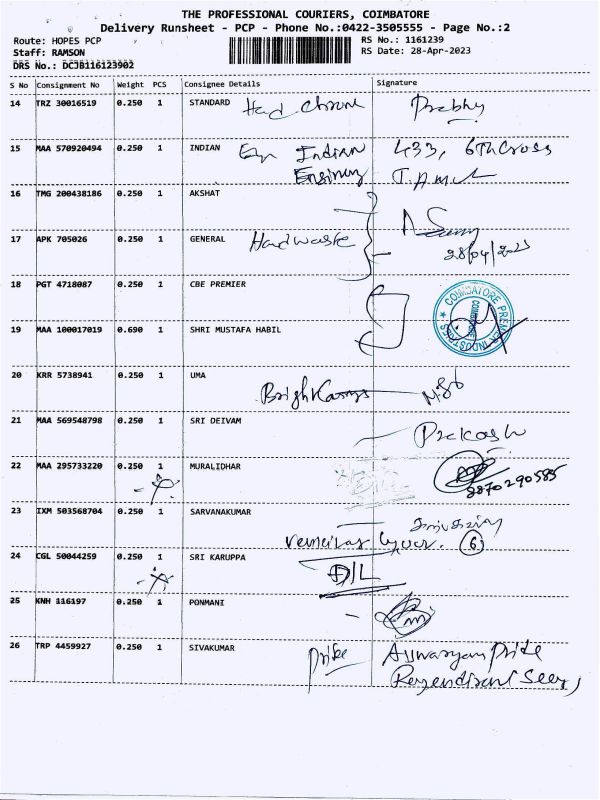 THE PROFESSIONAL COURIERS, COIMBATORE
Delivery Runsheet - PCP - Phone No.:0422-3505555 - Page No.:2
Route: HOPES PCP
RS No.: 1161239
Staff: RAMSON
RS Date: 28-Apr-2023
DRS No.: DCJB116123902
S No Consignment No Weight PCS Consignee Details Signature
14 TRZ 30016519 0.250 1 STANDARD Hard Chrome Prabhu
15 MAA 570920494 0.250 1 INDIAN Indian 433, 6th Cross
16 TMG 200438186 0.250 1 AKSHAT
17 APK 705026 0.250 1 GENERAL Hardwaste
28/04/2023
18 PGT 4718087 0.250 1 CBE PREMIER
COIMBATORE PREMIER INDUSTRIES
COIMBATORE
19 MAA 100017019 0.690 1 SHRI MUSTAFA HABIL
20 KRR 5738941 0.250 1 UMA
21 MAA 569548798 0.250 1 SRI DEIVAM Prakash
22 MAA 295733220 0.250 1 MURALIDHAR
9870290585
23 IXM 503568704 0.250 1 SARVANAKUMAR
6
24 CGL 50044259 0.250 1 SRI KARUPPA
D/L
25 KNH 116197 0.250 1 PONMANI
26 TRP 4459927 0.250 1 SIVAKUMAR Pride